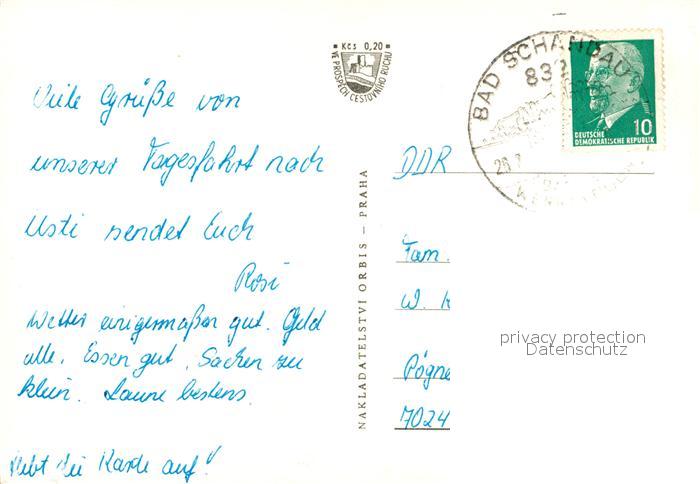 Viele Grüße von
unserer Tagesfahrt nach
Usti sendet Euch
Rosi
Wetter einigermaßen gut. Geld
alle. Essen gut. Sachen zu
klein. Laune bestens.
Hebt die Karte auf!
Kčs 0,20
VE PROSPĚCH CESTOVNÍHO RUCHU
NAKLADATELSTVÍ ORBIS – PRAHA
BAD SCHANDAU
832
28.7
10
DEUTSCHE
DEMOKRATISCHE REPUBLIK
DDR
Fam.
W.
7024
privacy protection
Datenschutz